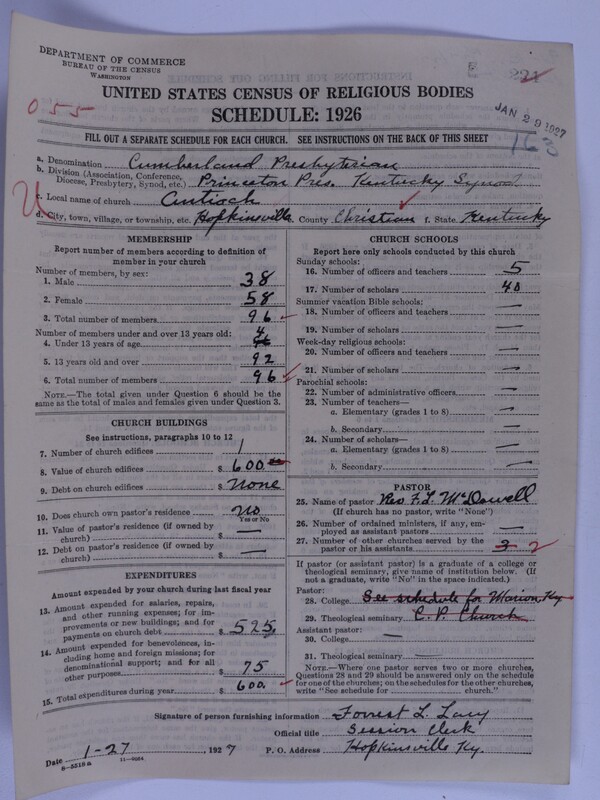 DEPARTMENT OF COMMERCE
BUREAU OF THE CENSUS
WASHINGTON
221
UNITED STATES CENSUS OF RELIGIOUS BODIES
055
SCHEDULE: 1926
JAN 29 1927
163
FILL OUT A SEPARATE SCHEDULE FOR EACH CHURCH. SEE INSTRUCTIONS ON THE BACK OF THIS SHEET
a. Denomination Cumberland Presbyterian
b. Division (Association, Conference, Diocese, Presbytery, Synod, etc.) Princeton Pres. Kentucky Synod
c. Local name of church Antioch
d. City, town, village, or township, etc. Hopkinsville e. County Christian f. State Kentucky
MEMBERSHIP
Report number of members according to definition of
member in your church
Number of members, by sex:
1. Male 38
2. Female 58
3. Total number of members 96
Number of members under and over 13 years old:
4. Under 13 years of age 4
5. 13 years old and over 92
6. Total number of members 96
NOTE.—The total given under Question 6 should be the
same as the total of males and females given under Question 3.
CHURCH BUILDINGS
See instructions, paragraphs 10 to 12
7. Number of church edifices 1
8. Value of church edifices $ 600.00
9. Debt on church edifices $ None
10. Does church own pastor's residence? No
Yes or No
11. Value of pastor's residence (if owned by
church) $ —
12. Debt on pastor's residence (if owned by
church) $ —
EXPENDITURES
Amount expended by your church during last fiscal year
13. Amount expended for salaries, repairs,
and other running expenses; for im-
provements or new buildings; and for
payments on church debt $ 525.
14. Amount expended for benevolences, in-
cluding home and foreign missions; for
denominational support; and for all
other purposes $ 75
15. Total expenditures during year $ 600.
CHURCH SCHOOLS
Report here only schools conducted by this church
Sunday schools:
16. Number of officers and teachers 5
17. Number of scholars 40
Summer vacation Bible schools:
18. Number of officers and teachers —
19. Number of scholars —
Week-day religious schools:
20. Number of officers and teachers —
21. Number of scholars —
Parochial schools:
22. Number of administrative officers —
23. Number of teachers—
a. Elementary (grades 1 to 8) —
b. Secondary —
24. Number of scholars—
a. Elementary (grades 1 to 8) —
b. Secondary —
PASTOR
25. Name of pastor Rev. F. L. McDowell
(If church has no pastor, write "None")
26. Number of ordained ministers, if any, em-
ployed as assistant pastors —
27. Number of other churches served by the
pastor or his assistants 3 2
If pastor (or assistant pastor) is a graduate of a college or
theological seminary, give name of institution below. (If
not a graduate, write "No" in the space indicated.)
Pastor:
28. College See schedule for Marion, Ky.
29. Theological seminary C. P. Church
Assistant pastor:
30. College —
31. Theological seminary —
NOTE.—Where one pastor serves two or more churches,
Questions 28 and 29 should be answered only on the schedule
for one of the churches; on the schedules for the other churches,
write "See schedule for ........ church."
Signature of person furnishing information Forrest L. Lacy
Official title Session Clerk
Date 1-27 1927 P. O. Address Hopkinsville Ky.